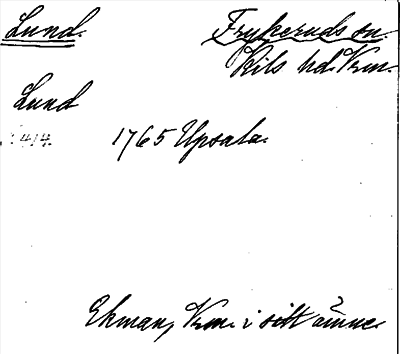 Lund. Frykeruds sn.
Kils hd. Vrm.
Lund
1765 Upsala.
Ekman, Vrm. i sitt ämne.